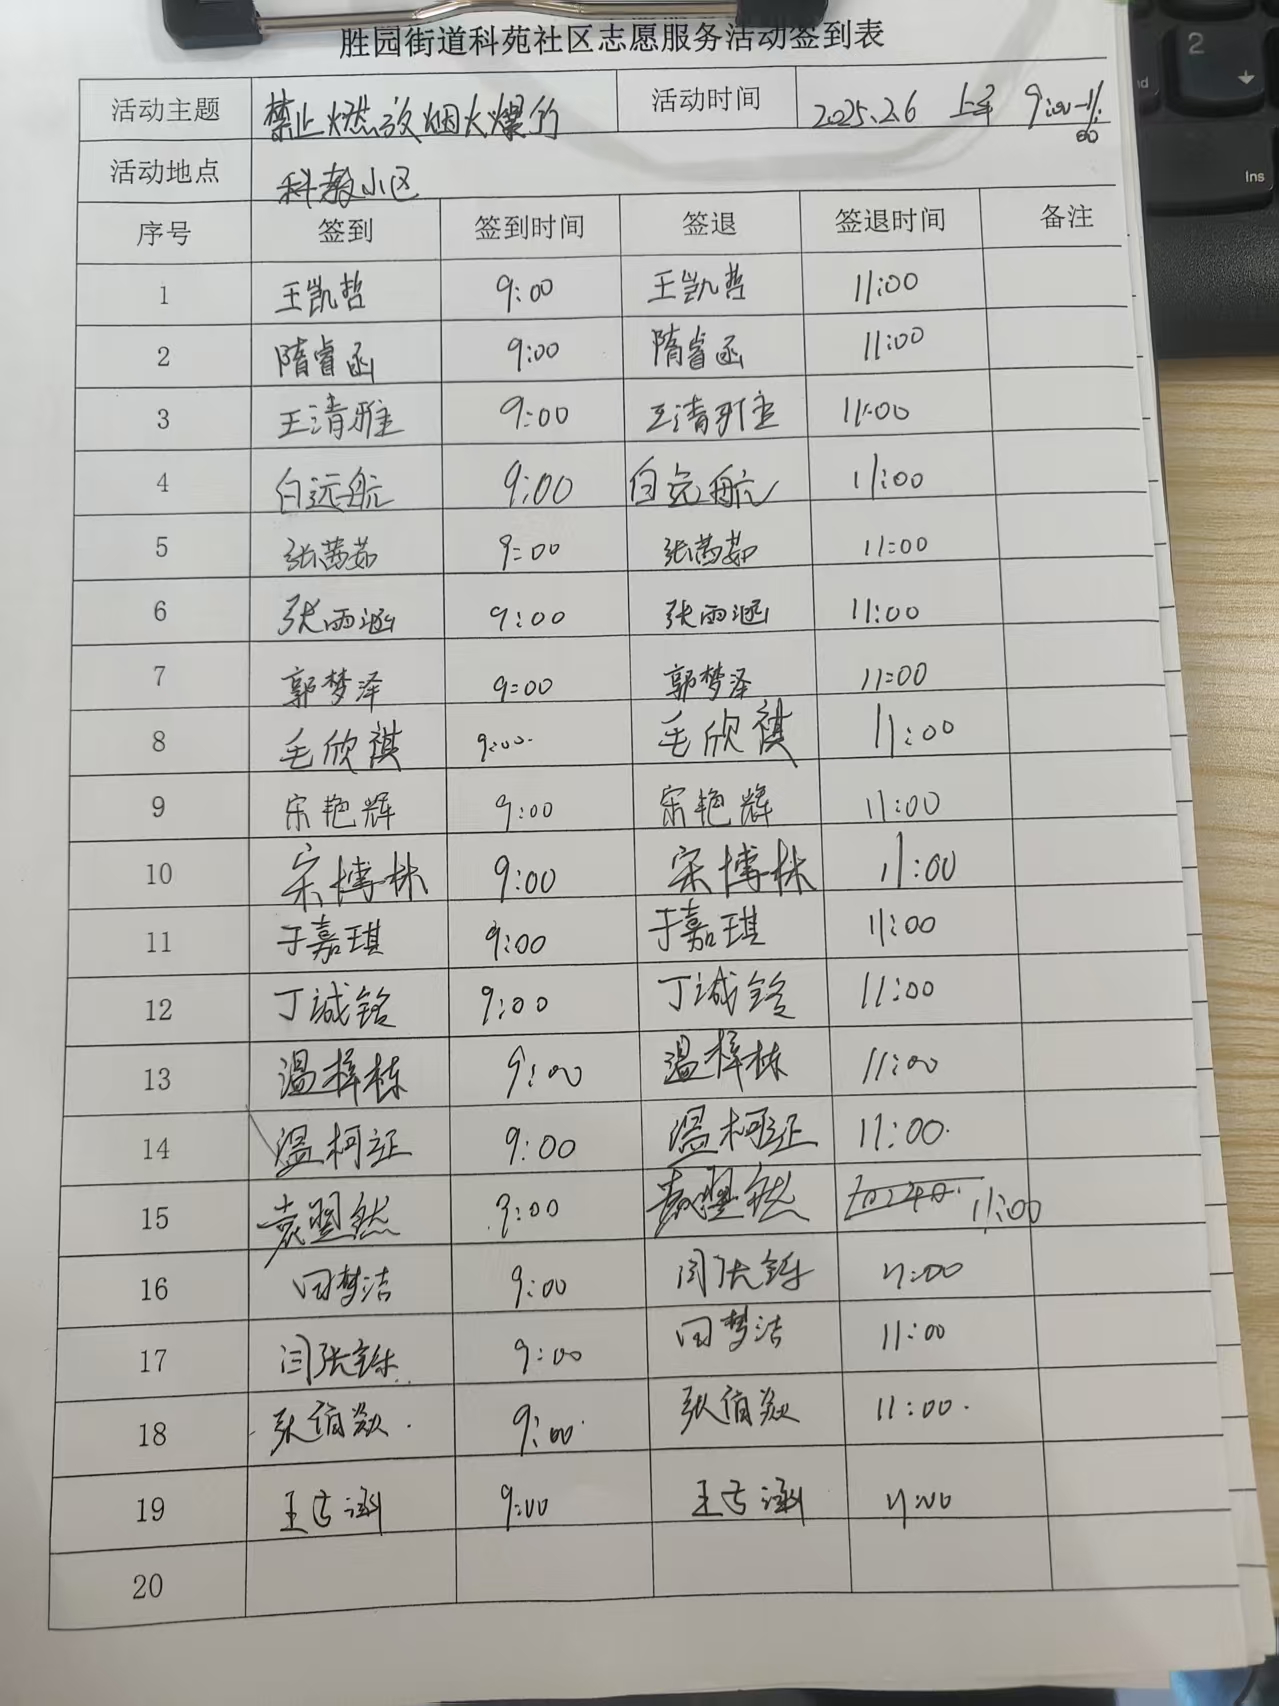 胜园街道科苑社区志愿服务活动签到表
活动主题 禁止燃放烟火爆竹 活动时间 2025.2.6 上午 9:00-11:00
活动地点 科教小区
序号 签到 签到时间 签退 签退时间 备注
1 王凯哲 9:00 王凯哲 11:00
2 隋睿函 9:00 隋睿函 11:00
3 王清雅 9:00 王清雅 11:00
4 白远航 9:00 白远航 11:00
5 张茜茹 9:00 张茜茹 11:00
6 张雨涵 9:00 张雨涵 11:00
7 郭梦泽 9:00 郭梦泽 11:00
8 毛欣祺 9:00 毛欣祺 11:00
9 宋艳辉 9:00 宋艳辉 11:00
10 宋博林 9:00 宋博林 11:00
11 于嘉琪 9:00 于嘉琪 11:00
12 丁诚铭 9:00 丁诚铭 11:00
13 温梓栋 9:00 温梓栋 11:00
14 温柯证 9:00 温柯证 11:00
15 袁翌然 9:00 袁翌然 11:00
16 田梦洁 9:00 闫张铄 11:00
17 闫张铄 9:00 田梦洁 11:00
18 张 9:00 张 11:00
19 王 涵 9:00 王 涵 11:00
20
2
Ins